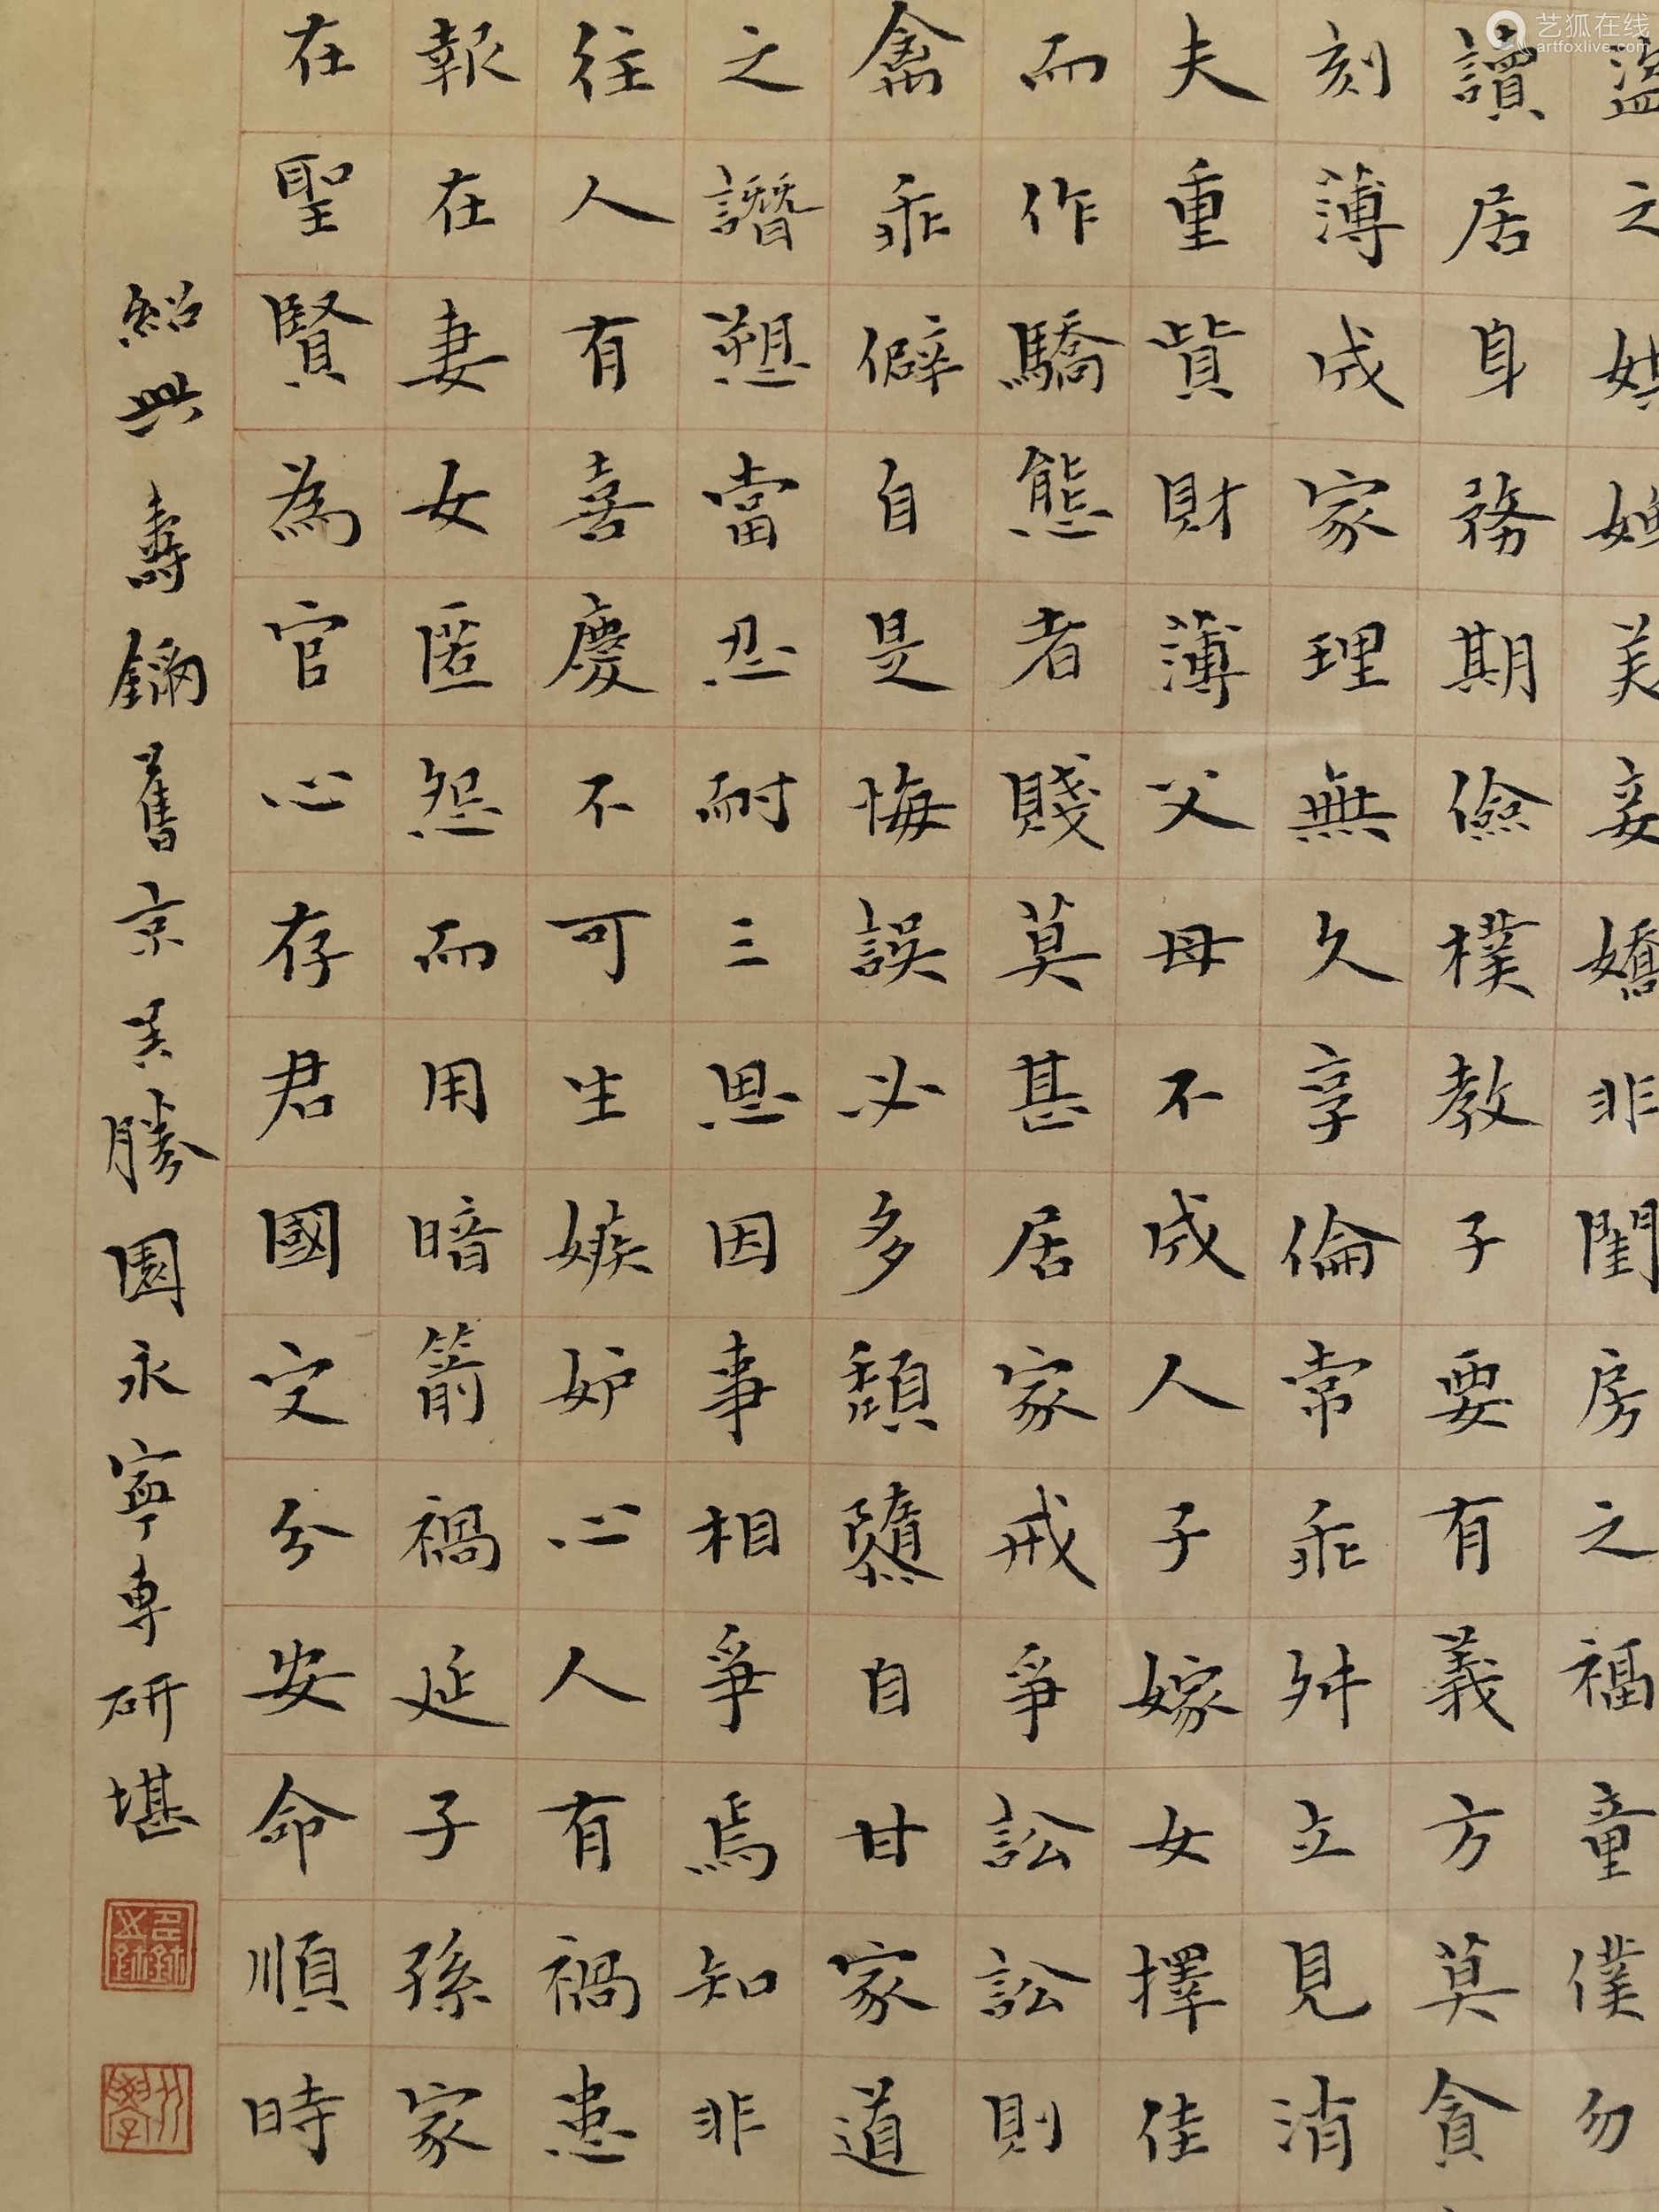 盜之媒婢美妾嬌非閨房之福童僕勿
讀居身務期儉樸教子要有義方莫貪
刻薄成家理無久享倫常乖舛立見消
夫重貲財薄父母不成人子嫁女擇佳
而作驕態者賤莫甚居家戒爭訟訟則
禽乖僻自是悔誤必多頹隳自甘家道
之譖愬當忍耐三思因事相爭焉知非
往人有喜慶不可生嫉妒心人有禍患
報在妻女匿怨而用暗箭禍延子孫家
在聖賢為官心存君國安分安命順時
紹興壽鉨舊京異勝園永寧專研堪
艺狐在线
artfoxlive.com